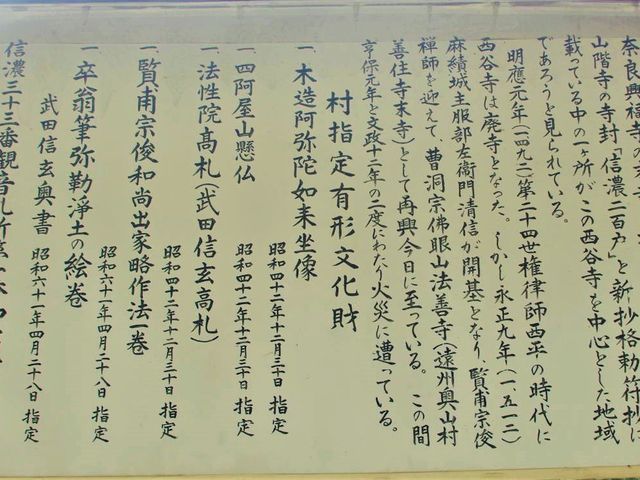 奈良興福寺の
山階寺の寺封「信濃二百戸」と新抄格勅符抄に
載っている中の一ヶ所がこの西谷寺を中心とした地域
であろうと見られている。
明應元年(一四九二)第二十四世権律師西平の時代に
西谷寺は廃寺となった。しかし永正九年(一、五一二)
麻績城主服部左衛門清信が開基となり、賢甫宗俊
禅師を迎えて、曹洞宗佛眼山法善寺(遠州奥山村
善住寺末寺)として再興今日に至っている。この間
享保元年と文政十二年の二度にわたり火災に遭っている。
村指定有形文化財
一、木造阿弥陀如来坐像
昭和四十二年十二月三十日 指定
一、四阿屋山懸仏
昭和四十二年十二月三十日 指定
一、法性院高札(武田信玄高札)
一、賢甫宗俊和尚出家略作法一巻
昭和四十二年十二月三十日 指定
一、卒翁筆弥勒淨土の絵巻
昭和六十一年四月二十八日 指定
武田信玄奥書
昭和六十一年四月二十八日 指定
信濃三十三番観音札所第一